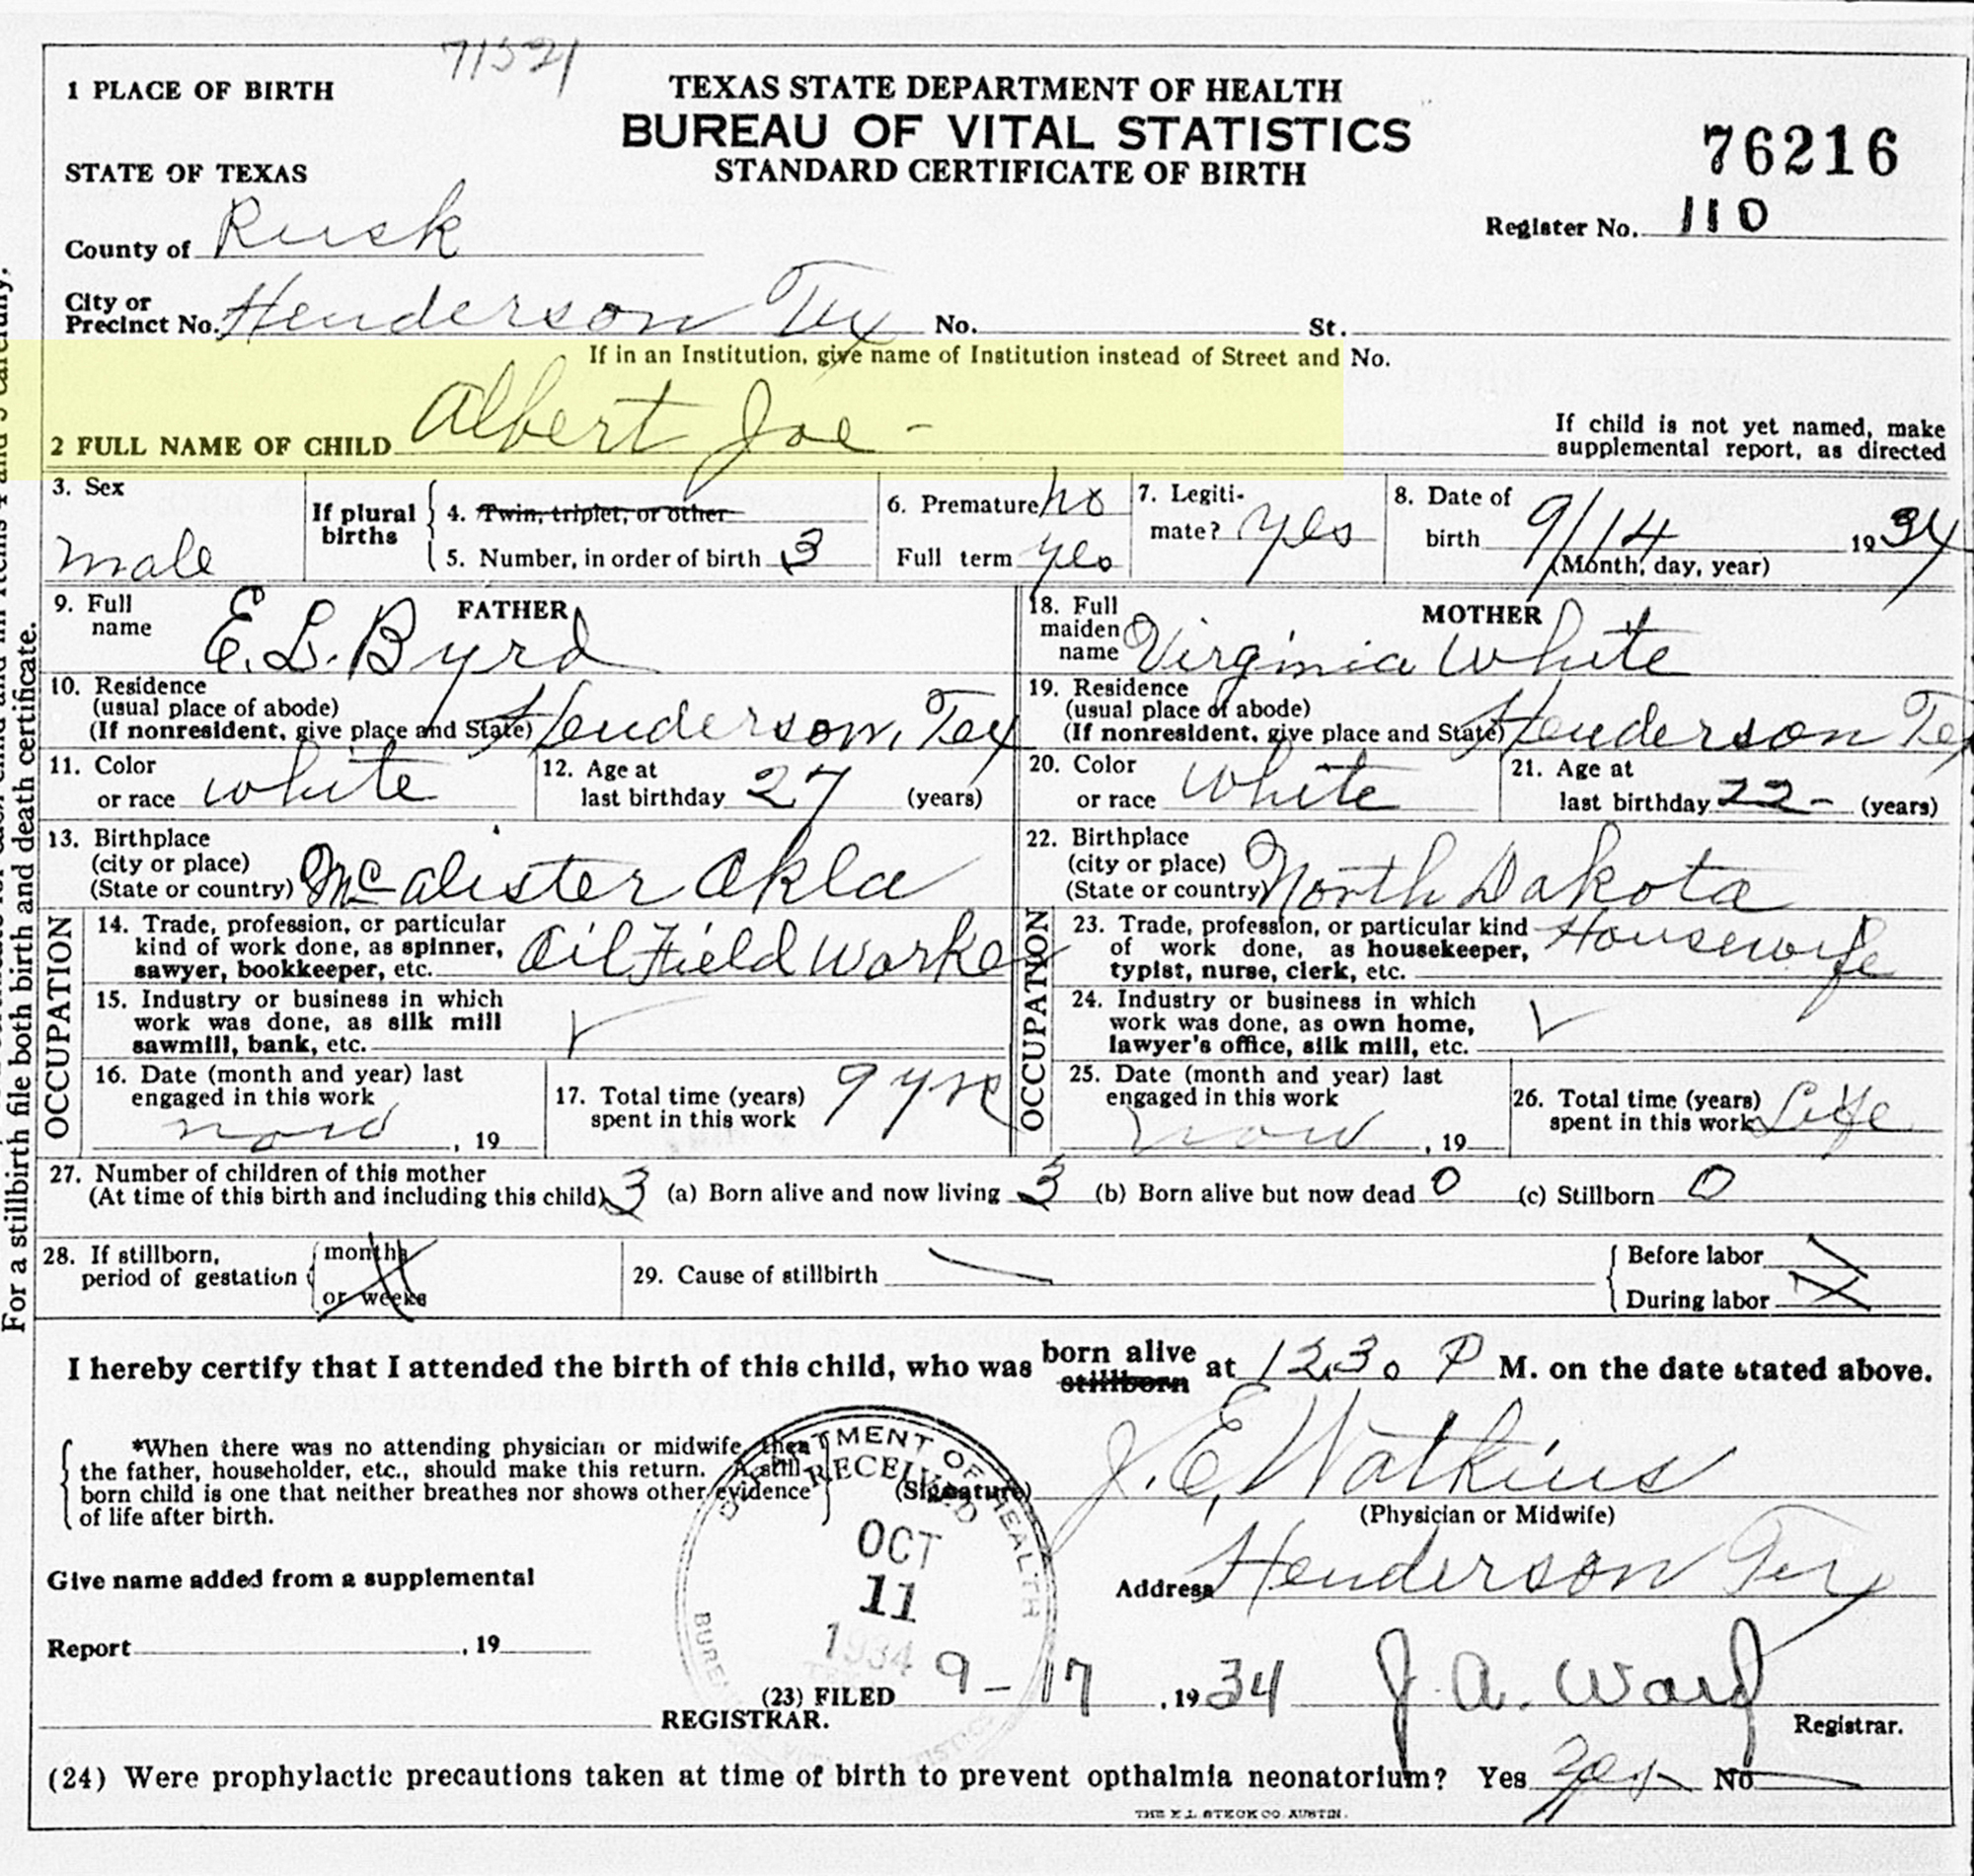 71521
1 PLACE OF BIRTH
TEXAS STATE DEPARTMENT OF HEALTH
BUREAU OF VITAL STATISTICS
STANDARD CERTIFICATE OF BIRTH
76216
STATE OF TEXAS
County of Rusk
Register No. 110
City or
Precinct No. Henderson Tex No. St.
If in an Institution, give name of Institution instead of Street and No.
2 FULL NAME OF CHILD Albert Joe -
If child is not yet named, make
supplemental report, as directed
3. Sex
male
If plural
births
4. Twin, triplet, or other
5. Number, in order of birth 3
6. Premature no
Full term yes
7. Legiti-
mate? yes
8. Date of
birth 9/14 1934
(Month, day, year)
9. Full
name
FATHER
E. L. Byrd
10. Residence
(usual place of abode)
(If nonresident, give place and State) Henderson, Tex
11. Color
or race white
12. Age at
last birthday 27 (years)
13. Birthplace
(city or place)
(State or country) McAlister Okla
OCCUPATION
14. Trade, profession, or particular
kind of work done, as spinner,
sawyer, bookkeeper, etc. Oil Field Worker
15. Industry or business in which
work was done, as silk mill
sawmill, bank, etc.
16. Date (month and year) last
engaged in this work
now , 19
17. Total time (years)
spent in this work 9 yrs
18. Full
maiden
name
MOTHER
Virginia White
19. Residence
(usual place of abode)
(If nonresident, give place and State) Henderson Tex
20. Color
or race White
21. Age at
last birthday 22- (years)
22. Birthplace
(city or place)
(State or country) North Dakota
OCCUPATION
23. Trade, profession, or particular kind
of work done, as housekeeper,
typist, nurse, clerk, etc. Housewife
24. Industry or business in which
work was done, as own home,
lawyer's office, silk mill, etc.
25. Date (month and year) last
engaged in this work
now , 19
26. Total time (years)
spent in this work Life
27. Number of children of this mother
(At time of this birth and including this child) 3 (a) Born alive and now living 3 (b) Born alive but now dead 0 (c) Stillborn 0
28. If stillborn,
period of gestation
months
or weeks
29. Cause of stillbirth
Before labor
During labor
I hereby certify that I attended the birth of this child, who was born alive stillborn at 12,30 P M. on the date stated above.
*When there was no attending physician or midwife, then
the father, householder, etc., should make this return. A still
born child is one that neither breathes nor shows other evidence
of life after birth.
(Signature) J. E. Watkins
(Physician or Midwife)
DEPARTMENT OF HEALTH
RECEIVED
OCT
11
1934
BUREAU VITAL STATISTICS
Give name added from a supplemental
Address Henderson Tex
Report , 19
(23) FILED 9-17, 1934 J. A. Ward
REGISTRAR.
Registrar.
(24) Were prophylactic precautions taken at time of birth to prevent opthalmia neonatorium? Yes Yes No
THE E.L. STECK CO. AUSTIN.
For a stillbirth file both birth and death certificate.